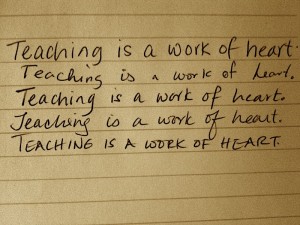 Teaching is a work of heart.
Teaching is a work of heart.
Teaching is a work of heart.
Teaching is a work of heart.
TEACHING IS A WORK OF HEART.